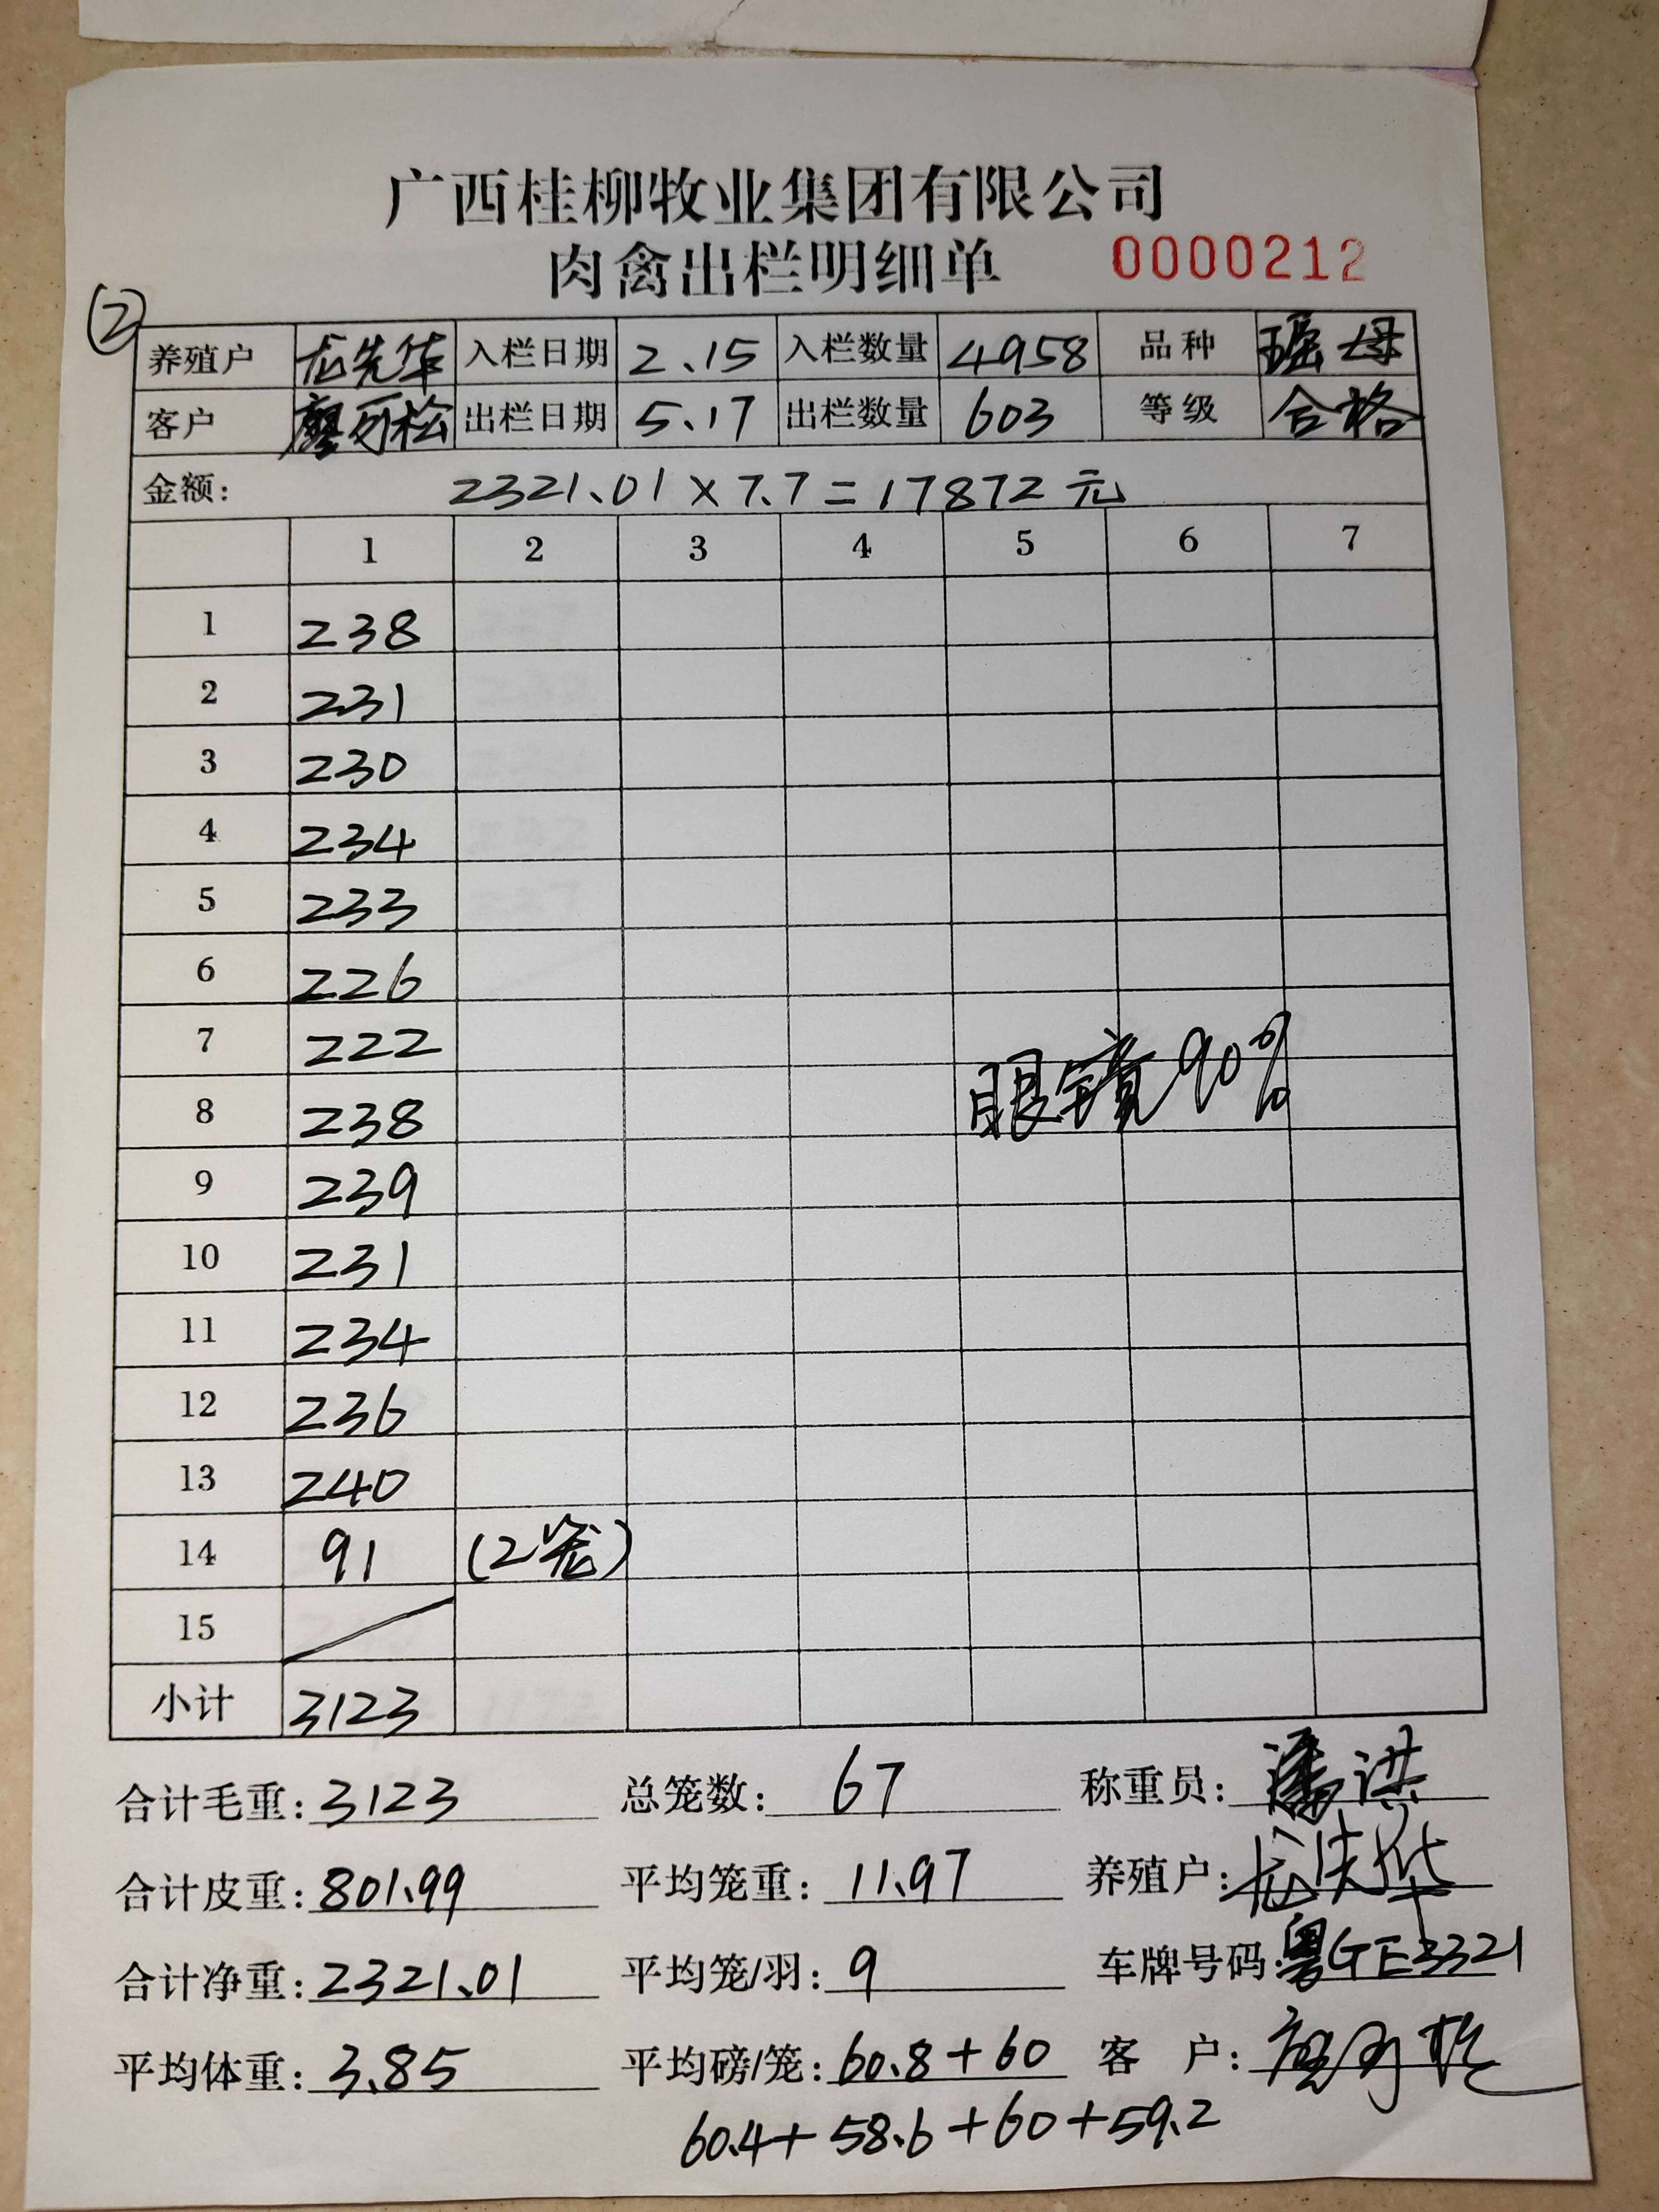 广西桂柳牧业集团有限公司
肉禽出栏明细单 0000212
②
养殖户 龙先华 入栏日期 2.15 入栏数量 4958 品种 瑶母
客户 廖可松 出栏日期 5.17 出栏数量 603 等级 合格
金额: 2321.01×7.7=17872元
1 2 3 4 5 6 7
1 238
2 231
3 230
4 234
5 233
6 226
7 222
8 238
眼镜90%
9 239
10 231
11 234
12 236
13 240
14 91 (2笼)
15
小计 3123
合计毛重: 3123 总笼数: 67 称重员: 潘洪
合计皮重: 801.99 平均笼重: 11.97 养殖户: 龙先华
合计净重: 2321.01 平均笼/羽: 9 车牌号码: 粤GE3321
平均体重: 3.85 平均磅/笼: 60.8+60 客 户:
60.4+58.6+60+59.2